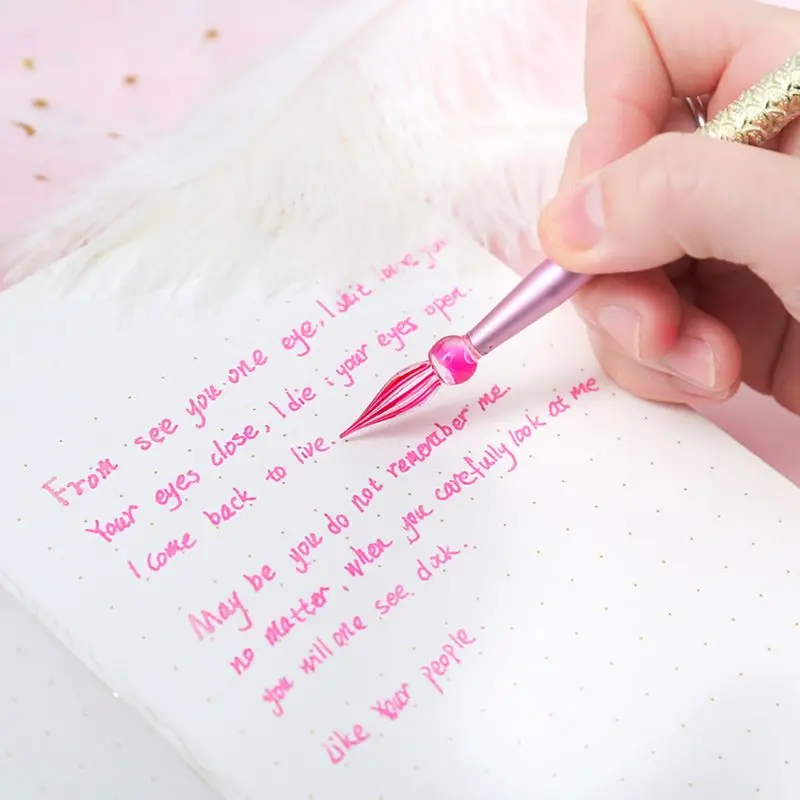 From see you one eye, I
Your eyes close, I die i your eyes open.
I come back to live.
May be you do not remember me.
no matter, when you carefully look at me
you will one see dick.
Like Your people